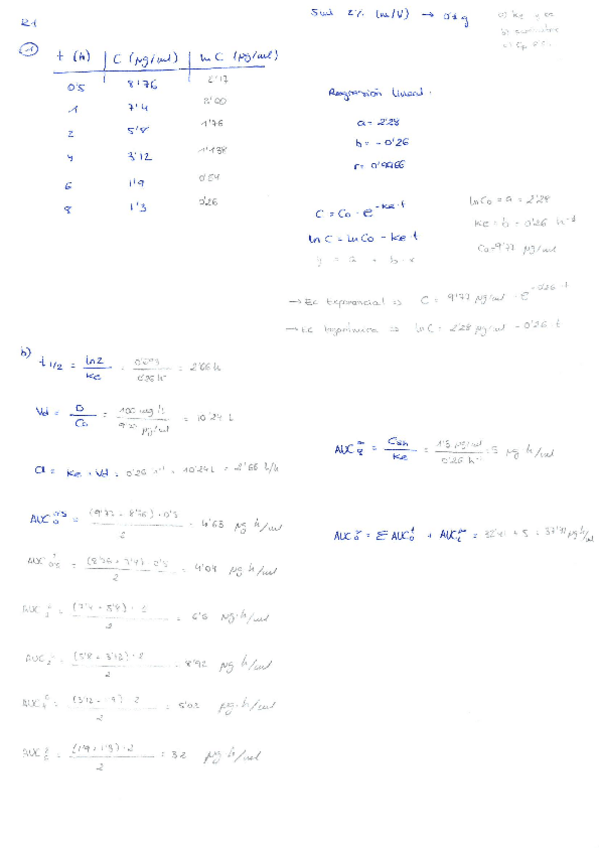 5ml 2% (m/V) → 0'1 g
①
t (h) | C (µg/ml) | ln C (µg/ml)
0'5 8'76 2'17
1 7'4 2'00
2 5'8 1'76
4 3'12 1'138
6 1'9 0'64
8 1'3 0'26
Regresión lineal.
a = 2'28
b = - 0'26
r = 0'9966
C = Co · e^-Ke·t
ln C = ln Co - Ke·t
y = a + b·x
ln Co = a = 2'28
Ke = b = 0'26 h-1
Co = 9'77 µg/ml
→ Ec Exponencial ⇒ C = 9'77 µg/ml · e^-0'26·t
→ Ec logarítmica ⇒ ln C = 2'28 µg/ml - 0'26 t
b) t 1/2 = ln2 / Ke = 0'693 / 0'26 h-1 = 2'66 h
Vd = D / Co = 100 mg / 9'77 µg/ml = 10'24 L
Cl = Ke · Vd = 0'26 h-1 · 10'24 L = 2'66 L/h
= 4'63 µg·h/ml
= 4'04 µg·h/ml
= 6'6 µg·h/ml
AUC = (5'8 + 3'12) · 2 / 2 = 8'92 µg·h/ml
= 5'02 µg·h/ml
AUC = (1'9 + 1'3) · 2 / 2 = 3'2 µg·h/ml
AUC = C8h / Ke = 1'3 µg/ml / 0'26 h-1 = 5 µg·h/ml
AUC = Σ AUC + AUC = 32'41 + 5 = 37'41 µg·h/ml